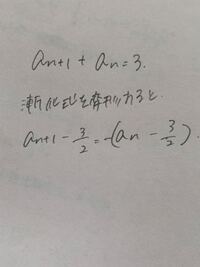 aₙ₊₁ + aₙ = 3.
漸化式を変形すると.
aₙ₊₁ - 3/2 = -(aₙ - 3/2).